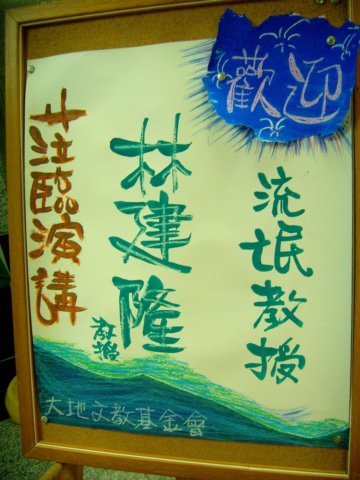 歡迎
流氓教授
林建隆
教授
蒞臨演講
大地文教基金會